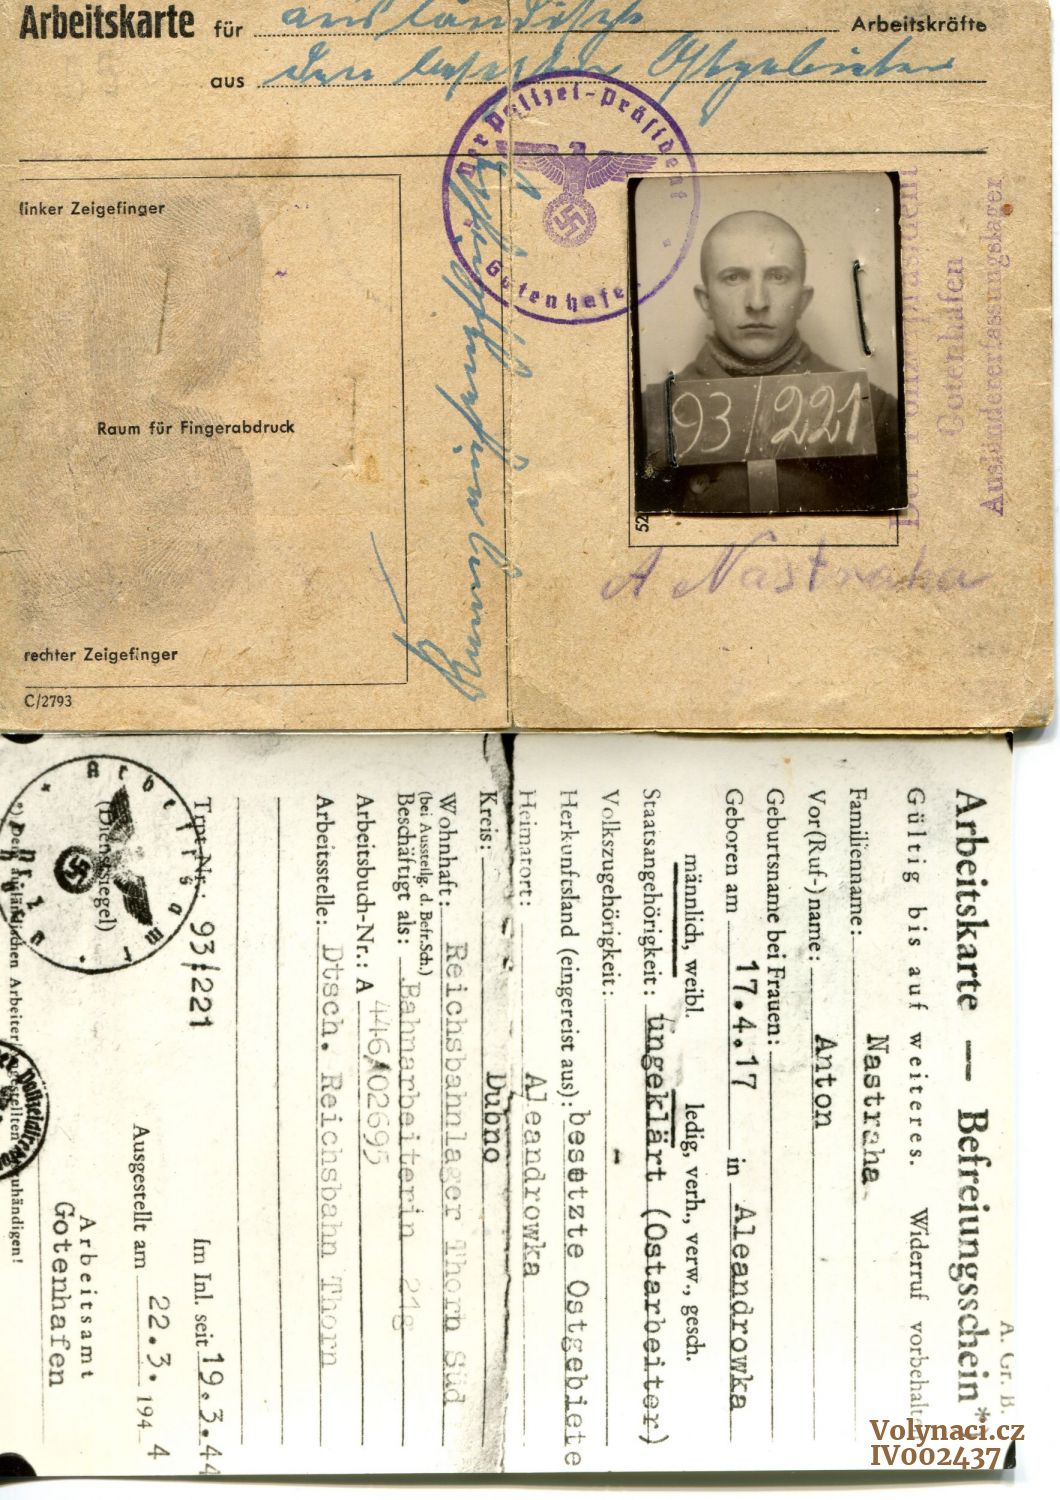 Arbeitskarte für ausländische Arbeitskräfte
aus den besetzten Ostgebieten
Der Polizei-Präsident
Gotenhafen
linker Zeigefinger
Raum für Fingerabdruck
rechter Zeigefinger
C/2793
93/221
52
Der Polizeipräsident
Gotenhafen
Ausländererfassungslager
A Nastraha
A. Gr. B.
Arbeitskarte — Befreiungsschein*)
Gültig bis auf weiteres. Widerruf vorbehalten
Familienname: Nastraha
Vor(Ruf-)name: Anton
Geburtsname bei Frauen:
Geboren am 17.4.17 in Aleandrowka
männlich, weibl. ledig, verh., verw., gesch.
Staatsangehörigkeit: ungeklärt (Ostarbeiter)
Volkszugehörigkeit: -
Herkunftsland (eingereist aus): besetzte Ostgebiete
Heimatort: Aleandrowka
Kreis: Dubno
Wohnhaft: Reichsbahnlager Thorn Süd
(bei Ausstellg. d. Befr.Sch.)
Beschäftigt als: Bahnarbeiterin 21g
Arbeitsbuch-Nr.: A 446/02695
Arbeitsstelle: Dtsch. Reichsbahn Thorn
Trpt-Nr.: 93/221 Im Inl. seit 19.3.44
Ausgestellt am 22.3. 194 4
(Dienstsiegel)
Arbeitsamt
Gotenhafen
*) Dem ausländischen Arbeiter/Angestellten auszuhändigen!
Volynaci.cz
IV002437